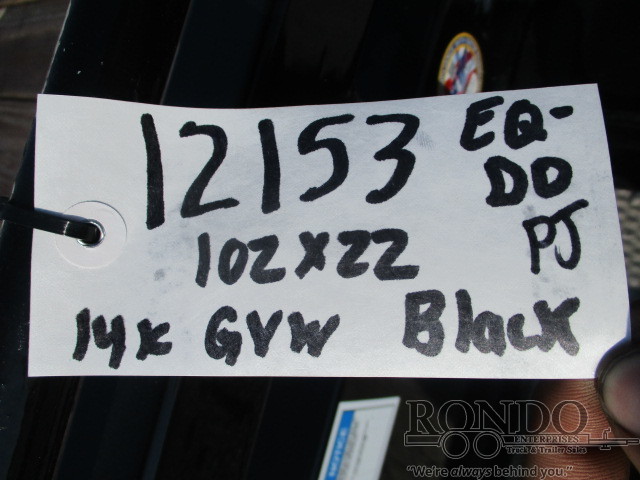 12153 EQ-
DO
PJ
102X22
14K GVW Black
NOTICE
RONDO
ENTERPRISES
Truck & Trailer Sales
"We're always behind you."